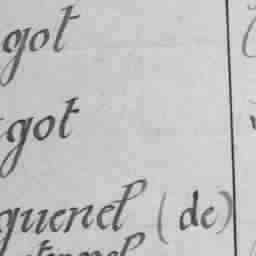 got
got
quenel (de)